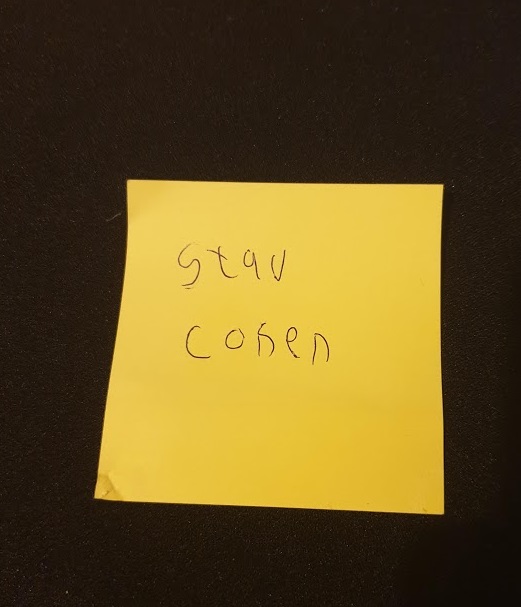 Stav
Cohen